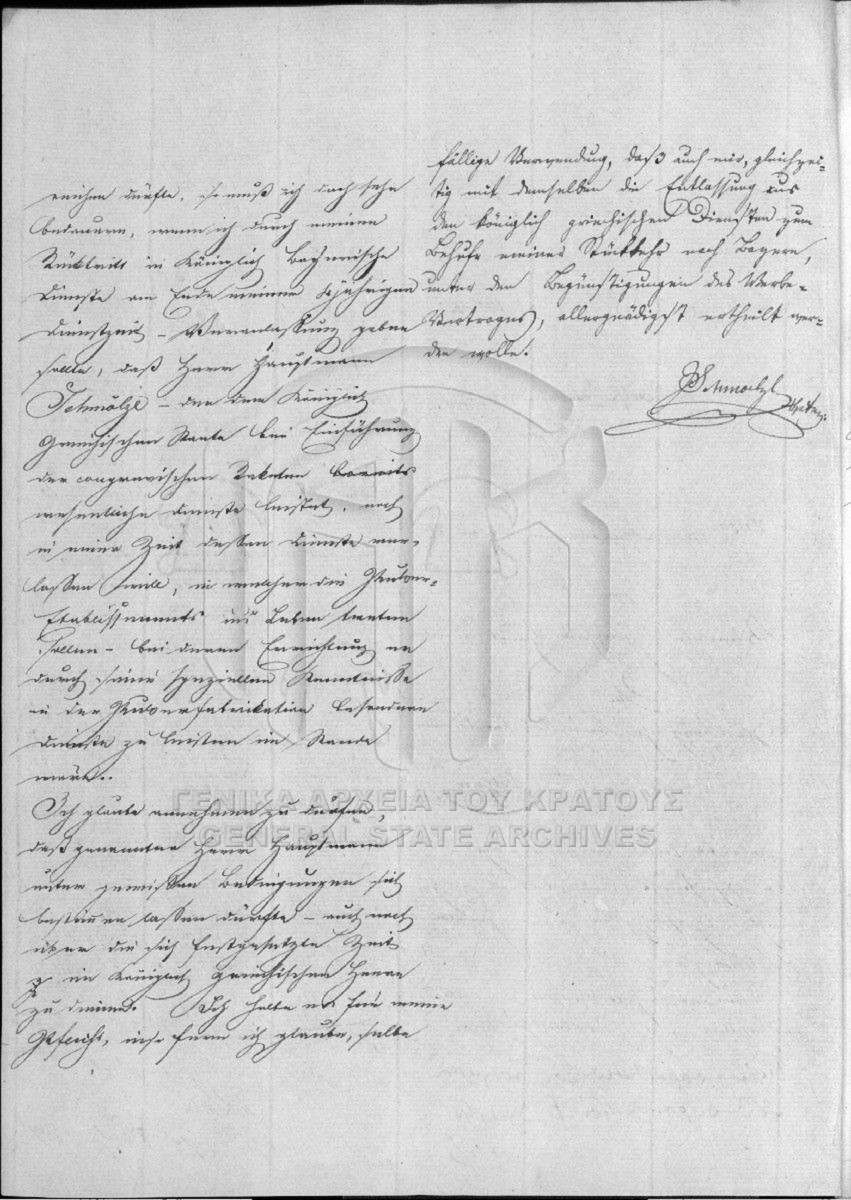 reichen dürfte, so muß ich doch sehr
bedauern, wenn ich durch meinen
Rücktritt in Königlich Bayerische
Dienste am Ende meiner 4jährigen
Dienstzeit – Veranlassung geben
sollte, daß Herr Hauptmann
Schmölzl – der dem Königlich
Griechischen Staate bei Einführung
der congrevischen Raketen bereits
wesentliche Dienste leistet, noch
in einer Zeit dessen Dienste ver-
lassen will, in welcher die Pulver-
Etablissements ins Leben treten
sollen – bei deren Errichtung er
durch seine speziellen Kenntnisse
in der Pulverfabrikation besondere
Dienste zu leisten im Stande
wäre.
Ich glaube annehmen zu dürfen,
daß genannter Herr Hauptmann
unter gewissen Bedingungen sich
bestimmen lassen dürfte – auch noch
über die sich festgesetzte Zeit
im Königlich Griechischen Heere
zu dienen. Ich halte es für meine
Pflicht, inso fern ich glaube, selbe
fällige Verwendung, daß auch mir, gleichzei-
tig mit demselben die Entlassung aus
den königlich griechischen Diensten zum
Behufe meiner Rückkehr nach Bayern,
unter den Begünstigungen des Werbe-
Vertrages, allergnädigst ertheilt wer-
den wolle.
Schmoelzl
ΓΕΝΙΚΑ ΑΡΧΕΙΑ ΤΟΥ ΚΡΑΤΟΥΣ
GENERAL STATE ARCHIVES